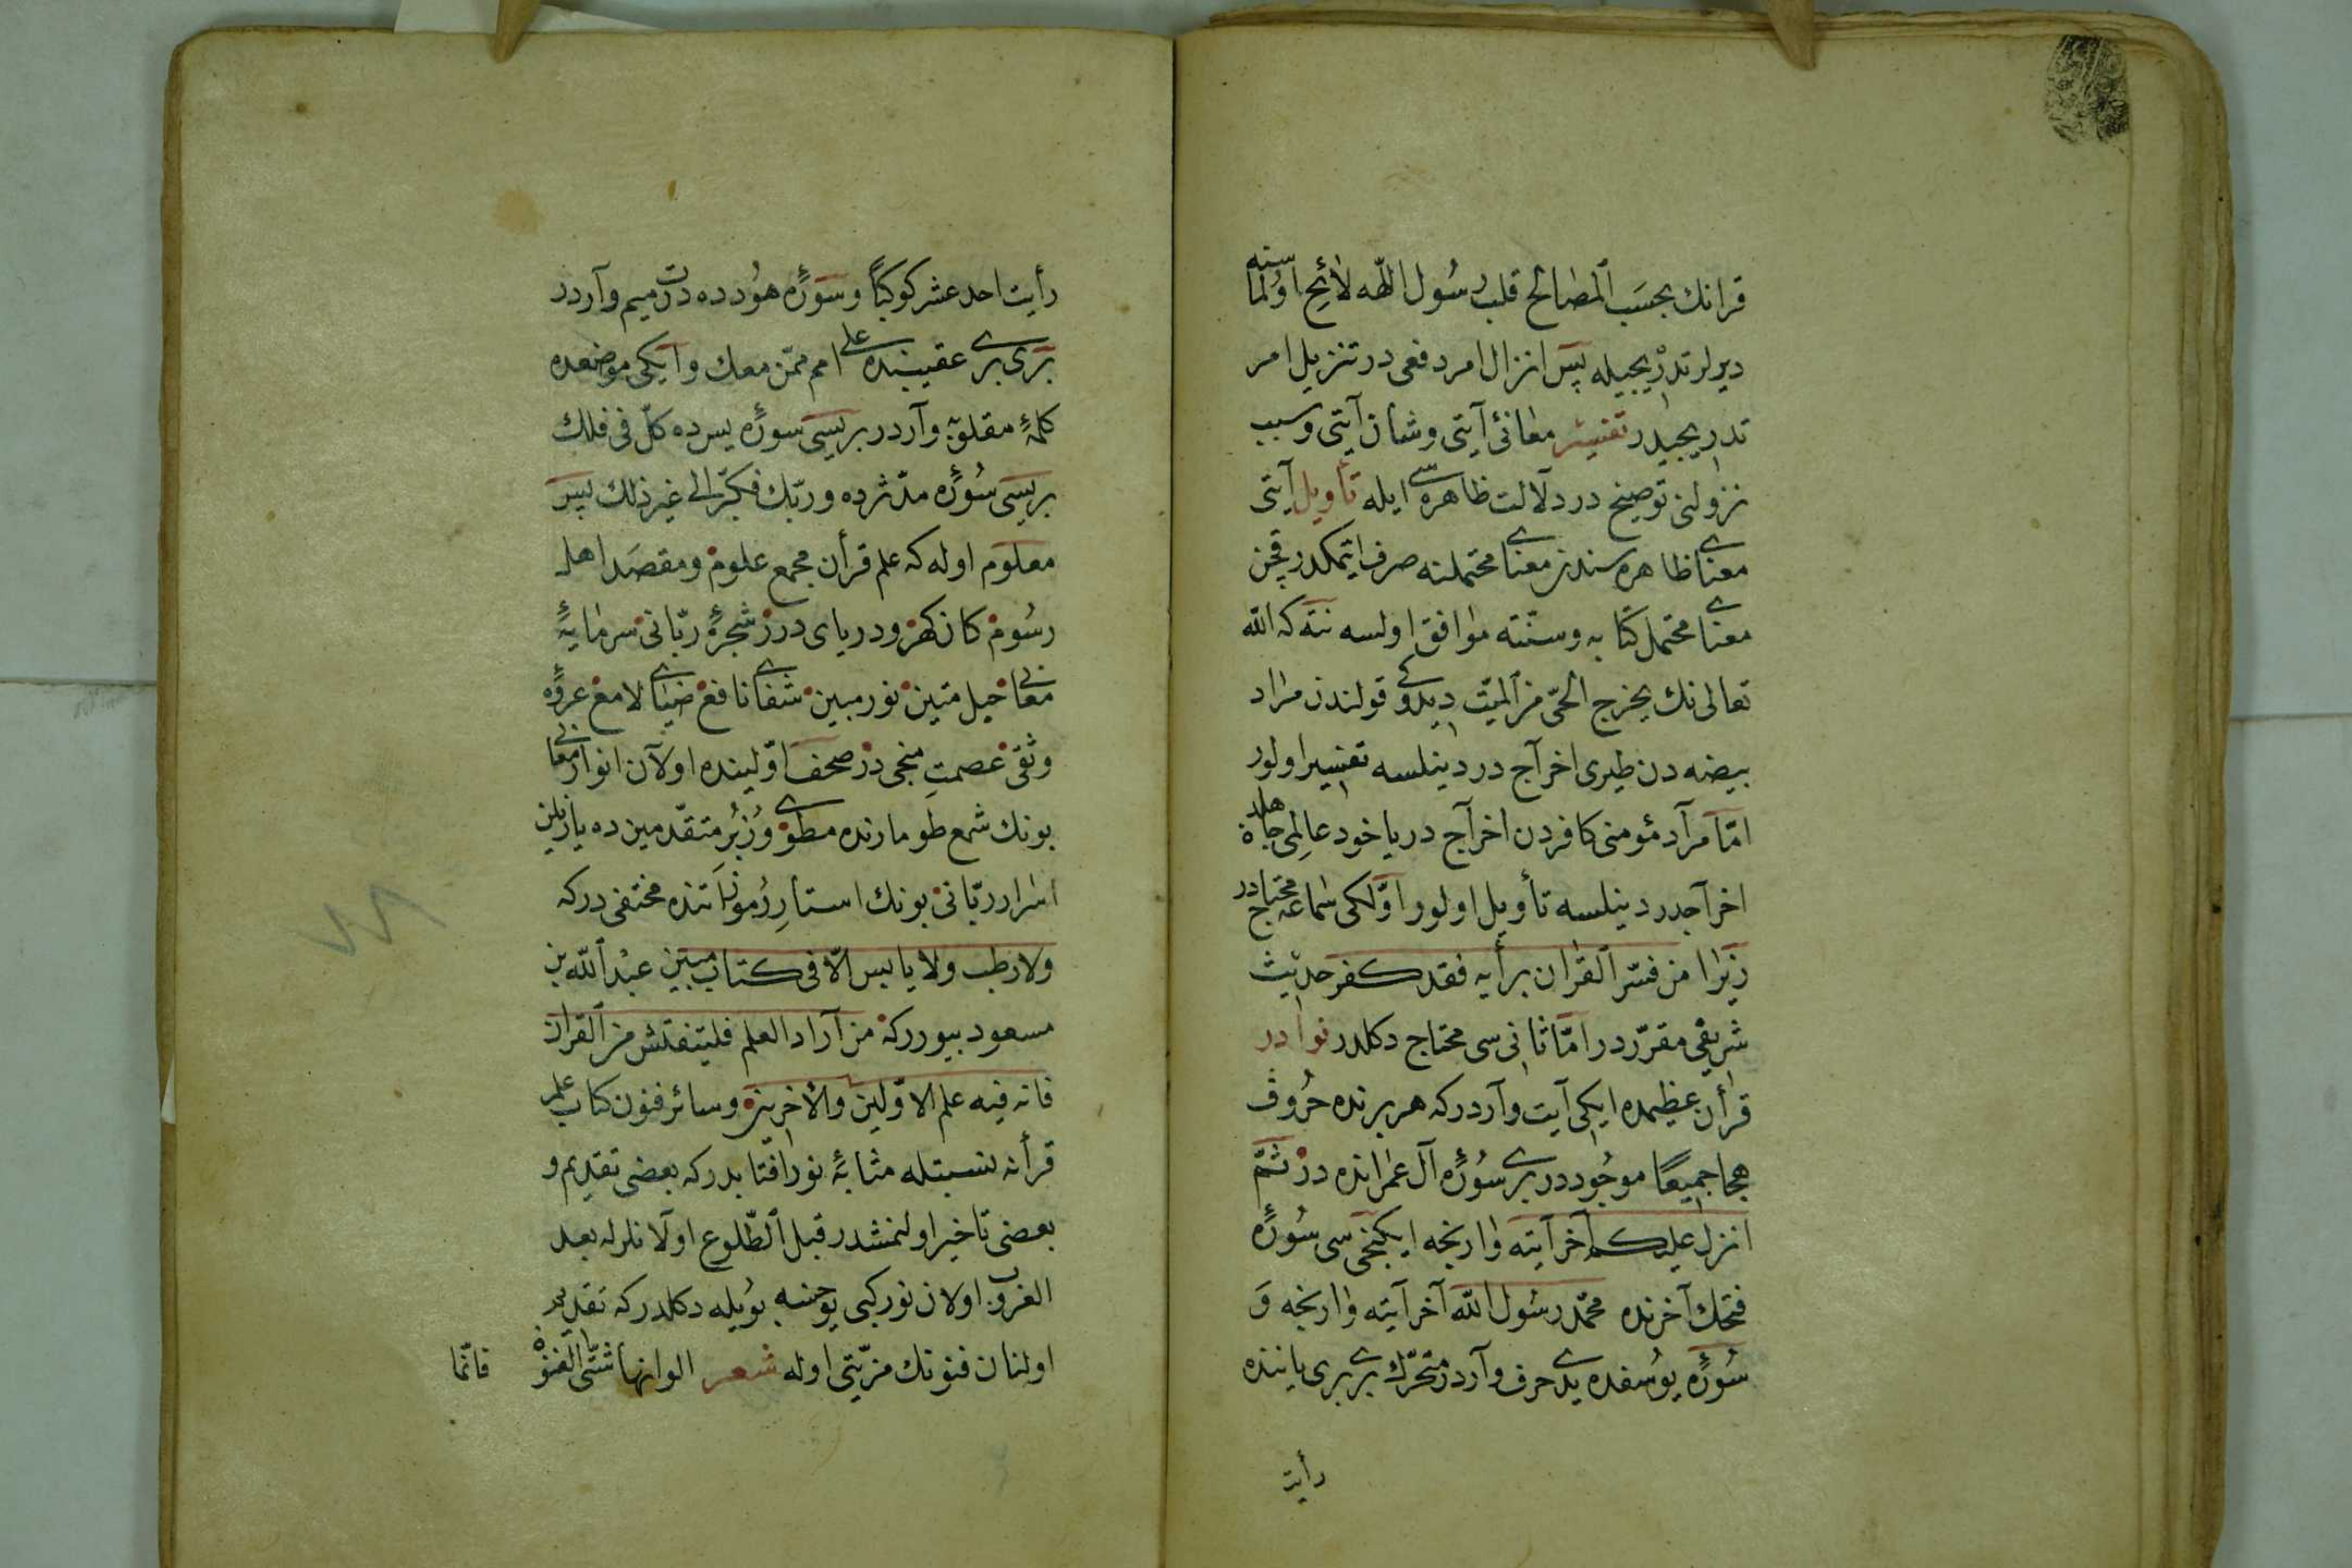 قرانك بحسَب المصالح قلب رسُول اللّه لائح اولماسنه
ديرلر تدريجيله پس انزال امر دفعى در تنزيل امر
تدريجيدر تفسير معانئ آيتى وشان آيتى وسبب
نزولنى توضيح در دلالت ظاهره سى ايله تأويل آيتى
معناى ظاهره سندن معناى محتملنه صرف ايتمكدر قچن
معناى محتمل كتابه وسنّته موافق اولسه نته كه اللّه
تعالى نك يخرج الحىّ من الميّت ديدوكى قولندن مراد
بيضه دن طيرى اخراج در دينلسه تفسير اولور
امّا مراد مؤمنى كافردن اخراج در ياخود عالِمى جاهلدن
اخراجدر دينلسه تأويل اولور اوّلكى سماعه محتاجدر
زيرا من فسّر القران برأيه فقد كفر حديث
شريفى مقرّردر امّا ثانى سى محتاج دكلدر نوادر
قرأن عظيمده ايكى آيت واردركه هر برنده حُروف
هجا جميعًا موجُوددر برى سُورۀ آل عمرانده در ثمّ
انزل عليكم آخر آيته وارنجه ايكنجى سى سُورۀ
فتحك آخرنده محمّد رسُول اللّه آخر آيته وارنجه وَ
سُورۀ يوُسفده يدى حرف واردر متحرّك برى برى ياننده
رأيت
رأيت احد عشر كوكبًا وسَورۀ هوُدده درت ميم واردر
برى برى عقيبنده على امم ممّن معك وايكى موضعده
كلمۀ مقلوبه واردر بريسى سورۀ يس ده كلّ فى فلك
بريسى سُورۀ مدّثرده وربّك فكبّر الى غير ذلك پس
معلوم اوله كه علم قرأن مجمع علوم ومقصَد اهل
رسُوم كان كهر ودرياى درر شجرۀ ربّانى سرمايۀ
معانى حبل متين نور مبين شفاى نافع ضياى لامع عروۀ
وثقى عصمتِ منجى در صحف اوّلينده اولان انوار معانى
بونك شمع طومارنده مطوى وزُبُرِ متقدّمين ده يازيلن
اسرار ربّانى بونك استار رُموزاتنده مختفى دركه
ولا رطب ولا يابس الّا فى كتاب مبين عبْد اللّه بن
مسعود بيوررکه من اراد العلم فليتفتّش من القران
فانه فيه علم الاوّلين والأخرين وسائر فنون كتاب علم
قرأنه نسبتله مثابۀ نور افتابدركه بعضى تقديم و
بعضى تاخير اولنمشدر قبل الطّلوع اولانلرله بعد
الغروب اولان نور كبى يوخسه بويله دكلدركه تقديم
اولنان فنونك مزيّتى اوله شعر الوانها شتّى الفنون
فانّما